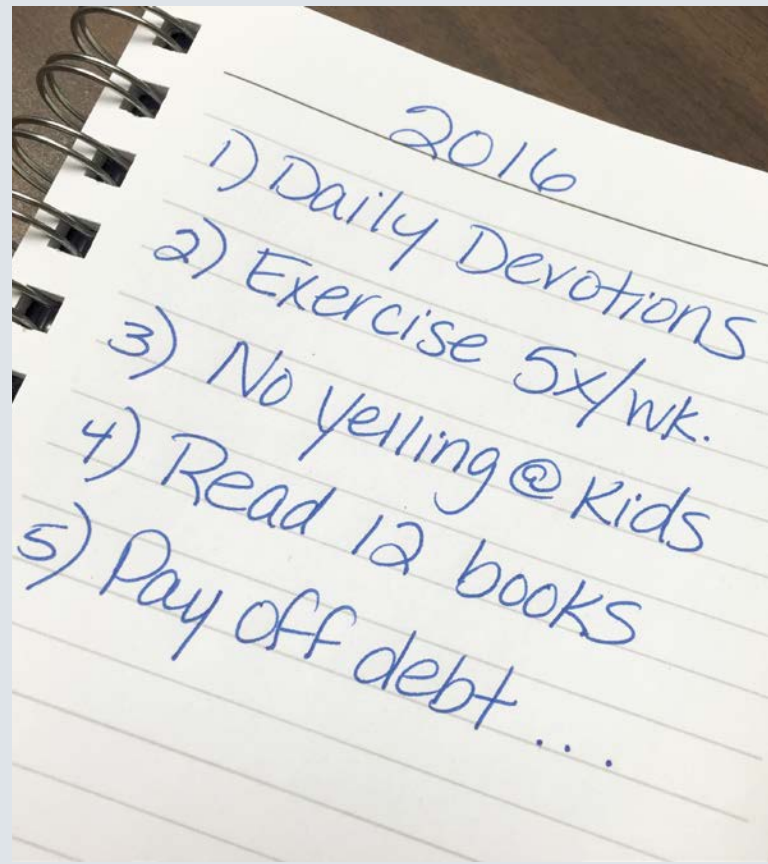 2016
1) Daily Devotions
2) Exercise 5x/wk.
3) No yelling @ Kids
4) Read 12 books
5) Pay off debt...